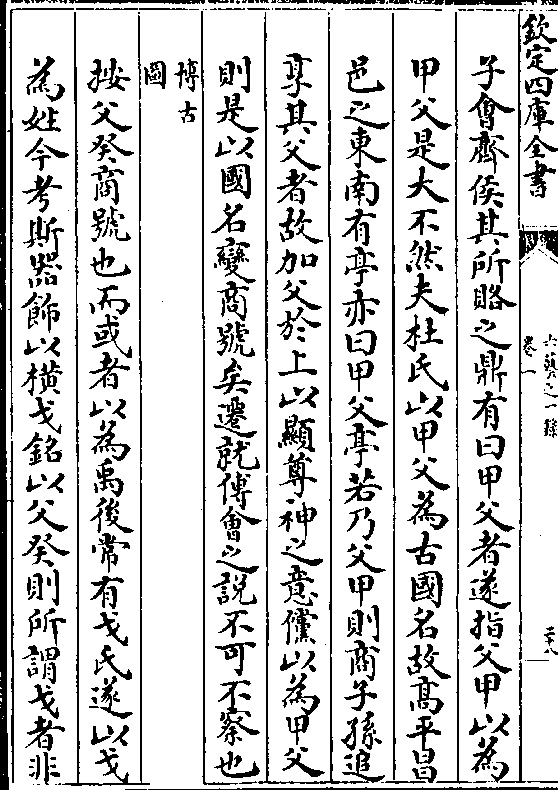 欽定四庫全書
六藝之一錄
卷一
二十八
子會齊侯其所賂之鼎有曰甲父者遂指父甲以為
甲父是大不然夫杜氏以甲父為古國名故高平昌
邑之東南有亭亦曰甲父亭若乃父甲則商子孫追
享其父者故加父於上以顯尊神之意儻以為甲父
則是以國名變商號矣遷就傅會之說不可不察也
博古
圖
按父癸商號也而或者以為禹後常有戈氏遂以戈
為姓今考斯器飾以橫戈銘以父癸則所謂戈者非